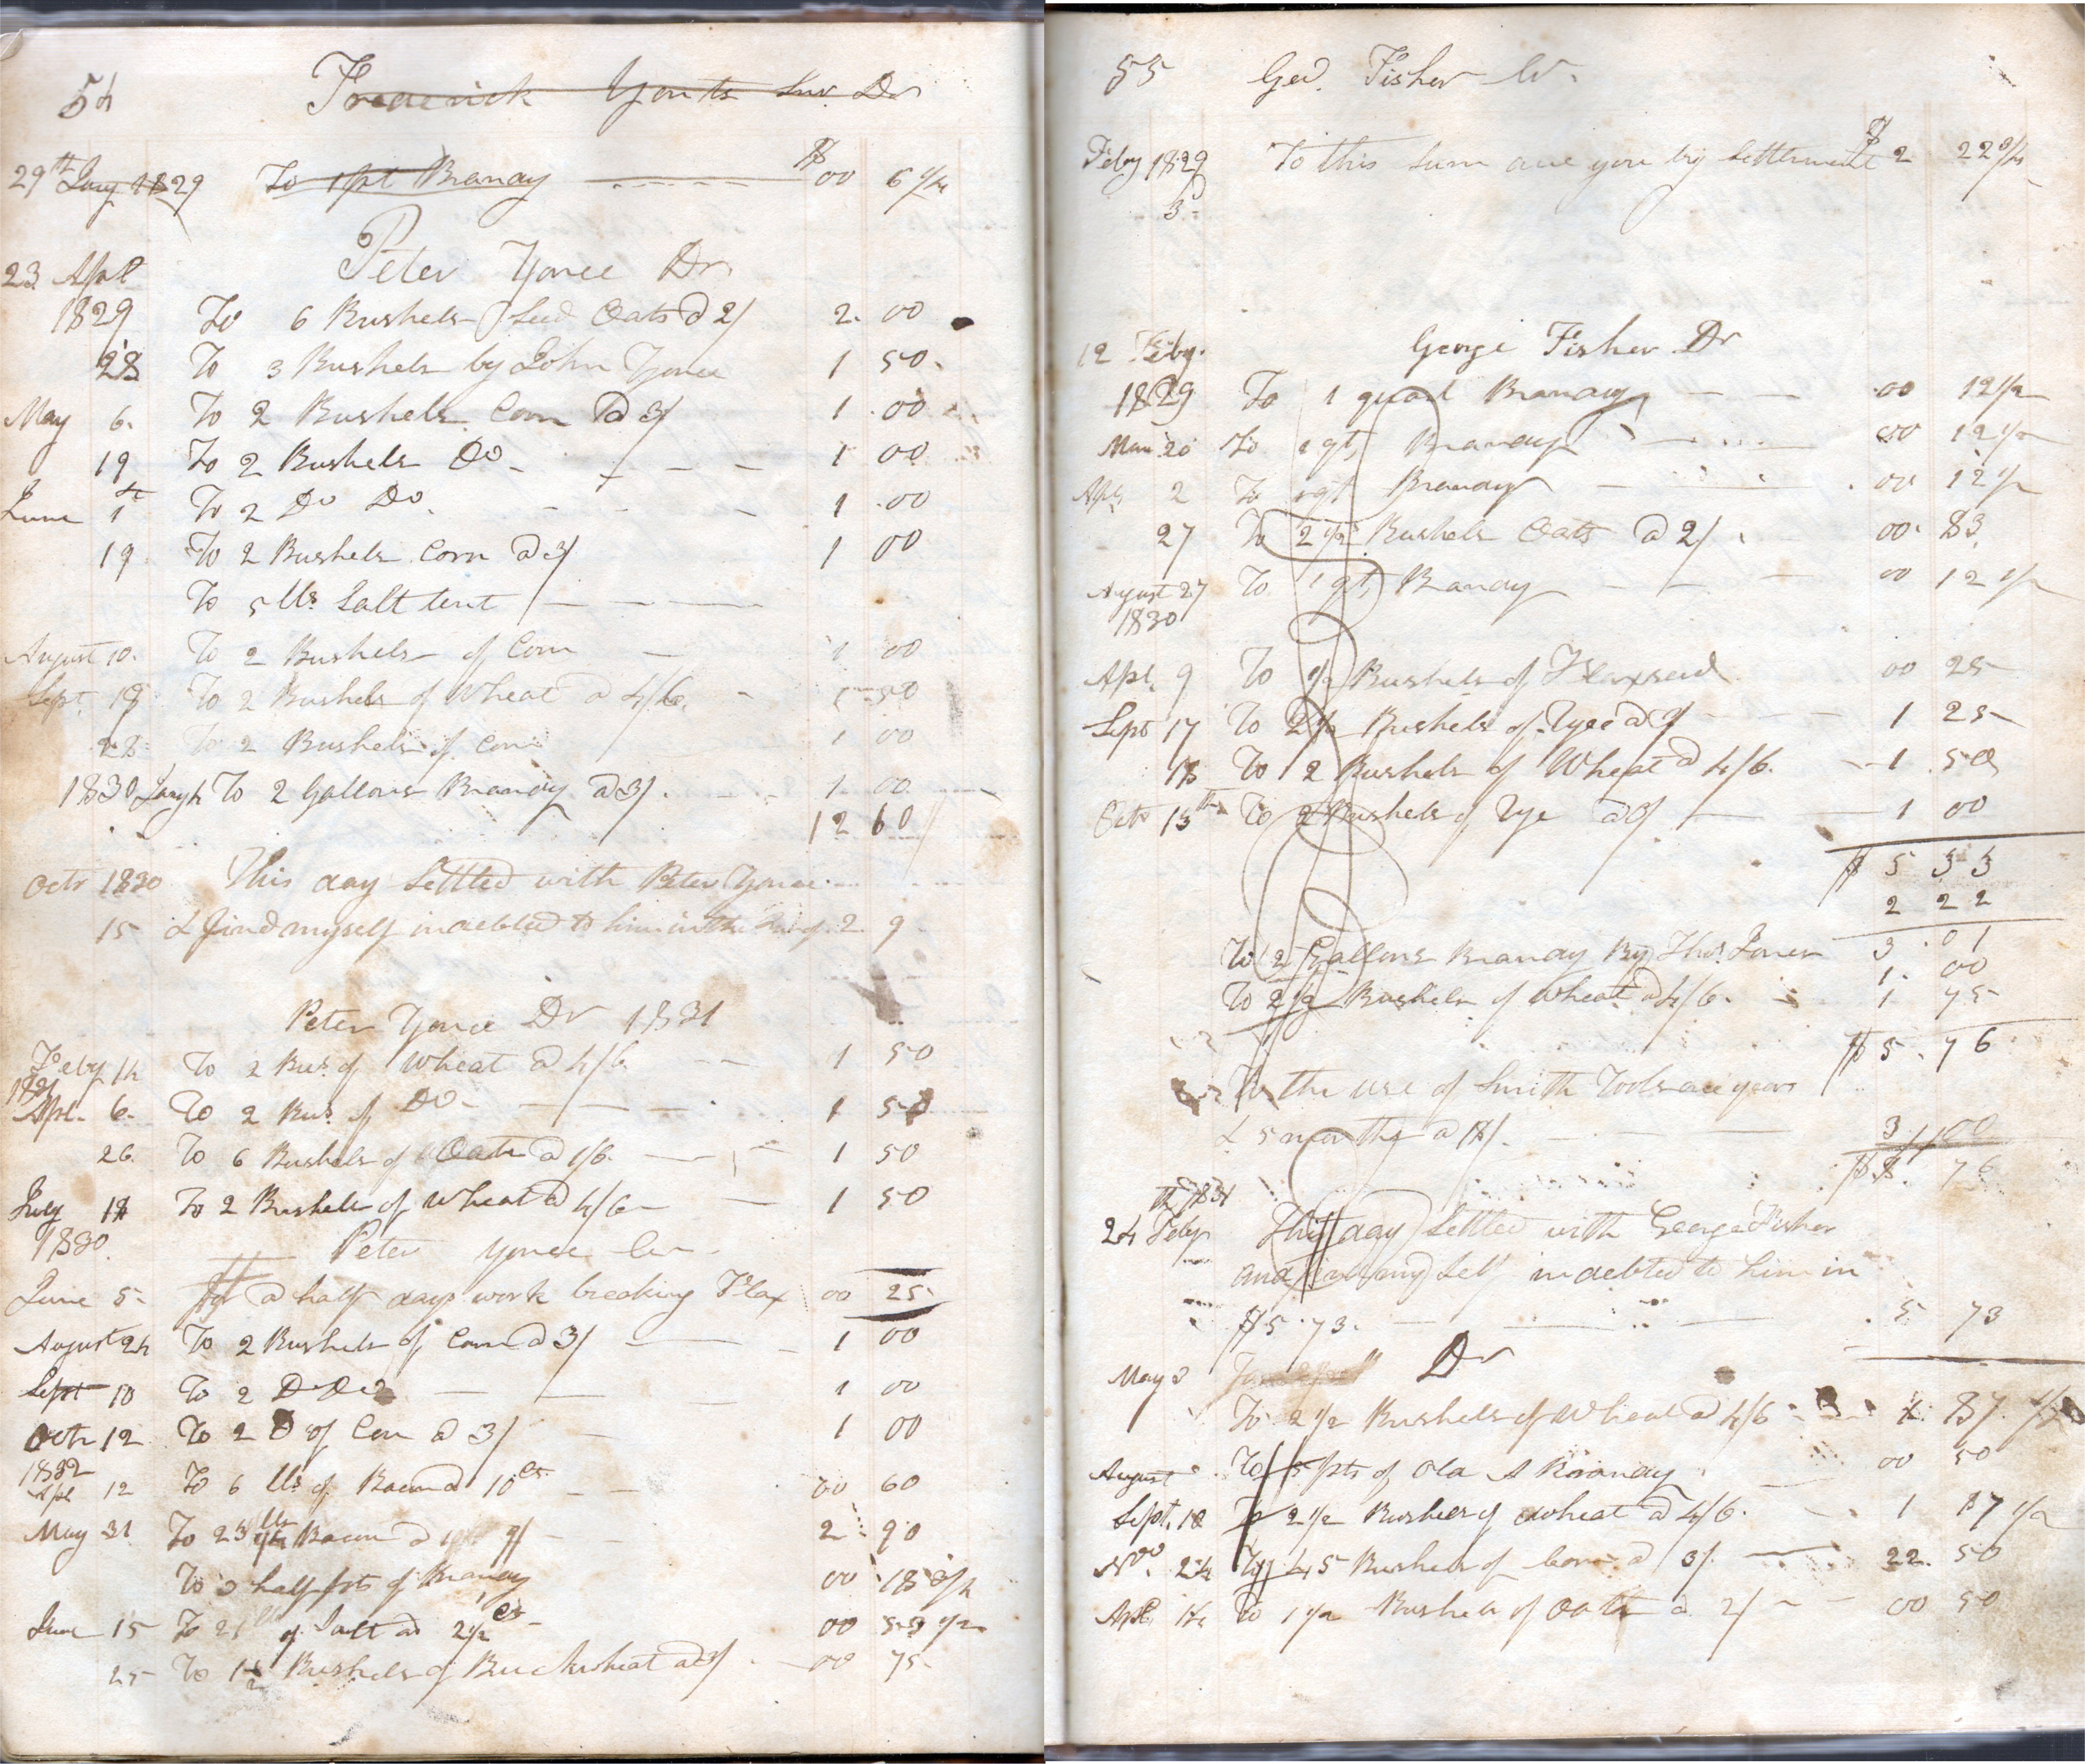 54 Frederick Yonts Dr
29th Jany 1829 To 1 pt Brandy $ 00 6 1/4
Peter Yonce Dr
23 Apl
1829 To 6 Bushels Seed Oats @ 2/ 2. 00
28 To 3 Bushels by John Yonce 1 50.
May 6. To 2 Bushels Corn @ 3/ 1 .00
19 To 2 Bushels Do 1 00
June 1st To 2 Do Do. 1 .00
19 To 2 Bushels Corn @ 3/ 1 00
To 5 lbs Salt lent
August 10. To 2 Bushels of Corn 1 00
Sept. 19 To 2 Bushels of Wheat @ 4/6. 1 50
28 To 2 Bushels of Corn 1 00
1830 Jany 4 To 2 Gallons Brandy @ 3/. 1 00
12 60
Octr 1830 This day Settled with Peter Yonce
15 & find myself indebted to him in the of 2. 9
Peter Yonce Dr 1831
Feby 14 To 2 Bus. of Wheat @ 4/6 1 50
1831
Apl. 6. To 2 Bus. of Do 1 50
26. To 6 Bushels of Oats @ 1/6. 1 50
July 18 To 2 Bushels of Wheat @ 4/6 1 50
1830. Peter Yonce Cr
June 5 For a half days work breaking Flax 00 25
August 24 To 2 Bushels of Corn @ 3/ 1 00
Sept 10 To 2 Do Do 1 00
Octr 12 To 2 B of Corn @ 3/ 1 00
1832
Apl 12 To 6 lbs of Bacon @ 10 cts. 00 60
May 31 To 23 lbs Bacon @ 2 90
To 3 half pts of Brandy 00 18 3/4
June 15 To 21 lb of Salt @ 2 1/2 cts 00 1/2
25 To 1 1/2 Bushels of Buckwheat @ 3/ 00 75
55 Geo. Fisher Cr.
Feby 1829 To this Sum due you by Settlement $ 2 22 3/4
3d
12 Feby. George Fisher Dr
1829 To 1 quart Brandy .00 12 1/2
Mar 20 To 1 qt. Brandy 00 12 1/2
Apl 2 To 1 qt Brandy 00 12 1/2
27 To 2 1/2 Bushels Oats @ 2/ 00. 83
August 27 To 1 qt. Brandy 00 12 1/2
1830
Apl. 9 To 1/2 Bushels of Flaxseed 00 25
Sept 17 To 2 1/2 Bushels of Rye @ 3/ 1 25
18 To 2 Bushels of Wheat @ 4/6. 1 .50
Octr 13th To 2 Bushels of Rye @ 3/ 1 00
$ 5 33
2 22
3 .01
To 2 Gallons Brandy By Thos. Jones 1. 00
To 2 1/2 Bushels of Wheat @ 4/6. 1 75
$ 5 . 76
To the use of Smith Tools one year
& 5 months @ 18/. 3 00
$ 8. 76
th 1831
24 Feby This day Settled with George Fisher
and find my Self indebted to him in
$5 . 73. 5 73
May 3 Dr
To 2 1/2 Bushels of Wheat @ 4/6 1. 87. 1/2
August To 5 pts of Old A Brandy 00 50
Sept. 18 To 2 1/2 Bushels of Wheat @ 4/6. 1 87 1/2
Nov. 24 To 45 Bushels of Corn @ 3/. 22. 50
Apl. 14 To 1 1/2 Bushels of Oats @ 2/ 00 50